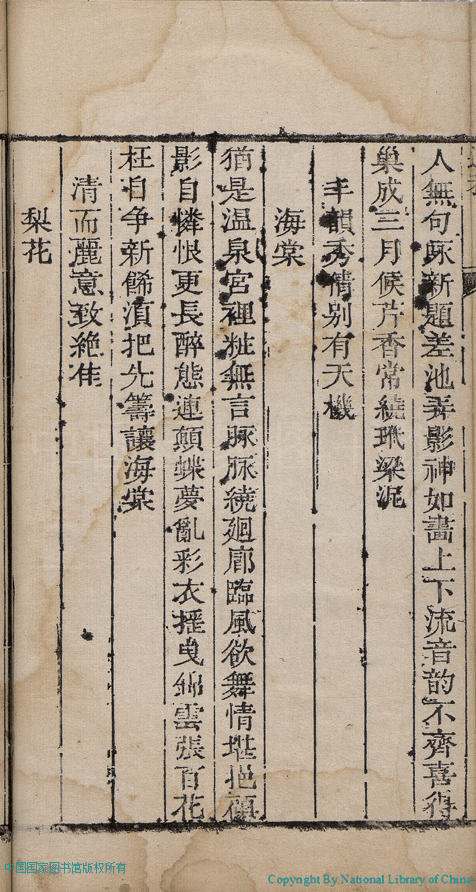 人無句琢新題差池弄影神如畫上下流音韵不齊喜得
巢成三月候芹香常繞玳梁泥
丰韻秀倩别有天機
海棠
猶是温泉宮裡粧無言脉脉繞廻廊臨風欲舞情堪挹顧
影自憐恨更長醉態連顛蝶夢亂彩衣摇曳錦雲張百花
枉自争新餙湏把先籌讓海棠
清而麗意致絶隹
梨花
中国国家图书馆版权所有
Copyright By National Library of China